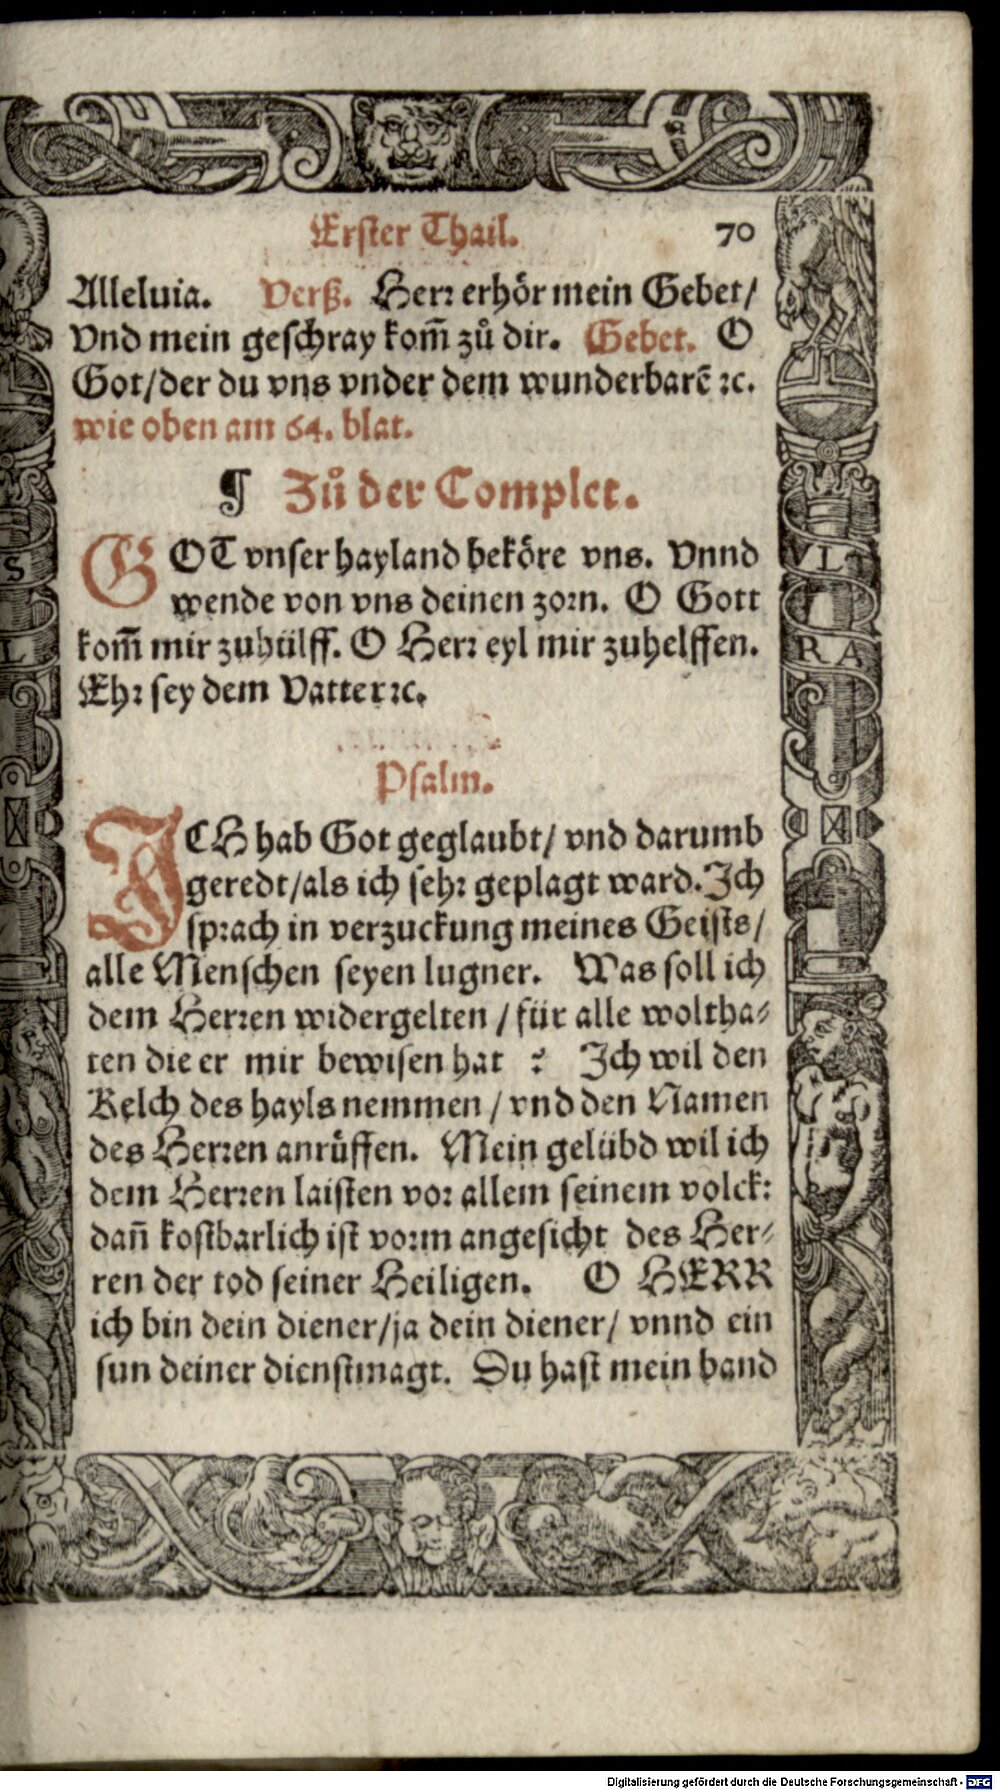 Erster Thail. 70
Alleluia. Verß. Herr erhör mein Gebet/
Vnd mein geschray kom̄ zů dir. Gebet. O
Got/der du vns vnder dem wunderbarē ꝛc.
wie oben am 64. blat.
¶ Zů der Complet.
GOT vnser hayland beköre vns. Vnnd
wende von vns deinen zorn. O Gott
kom̄ mir zuhülff. O Herr eyl mir zuhelffen.
Ehr sey dem Vatter ꝛc.
Psalm.
ICH hab Got geglaubt/ vnd darumb
geredt/als ich sehr geplagt ward. Ich
sprach in verzuckung meines Geists/
alle Menschen seyen lugner. Was soll ich
dem Herren widergelten / für alle woltha⸗
ten die er mir bewisen hat ? Ich wil den
Kelch des hayls nemmen / vnd den Namen
des Herren anrůffen. Mein gelübd wil ich
dem Herren laisten vor allem seinem volck:
dañ kostbarlich ist vorm angesicht des Her⸗
ren der tod seiner Heiligen. O HERR
ich bin dein diener/ja dein diener/ vnnd ein
sun deiner dienstmagt. Du hast mein band
S
L
VLT
RA
Digitalisierung gefördert durch die Deutsche Forschungsgemeinschaft - DFG